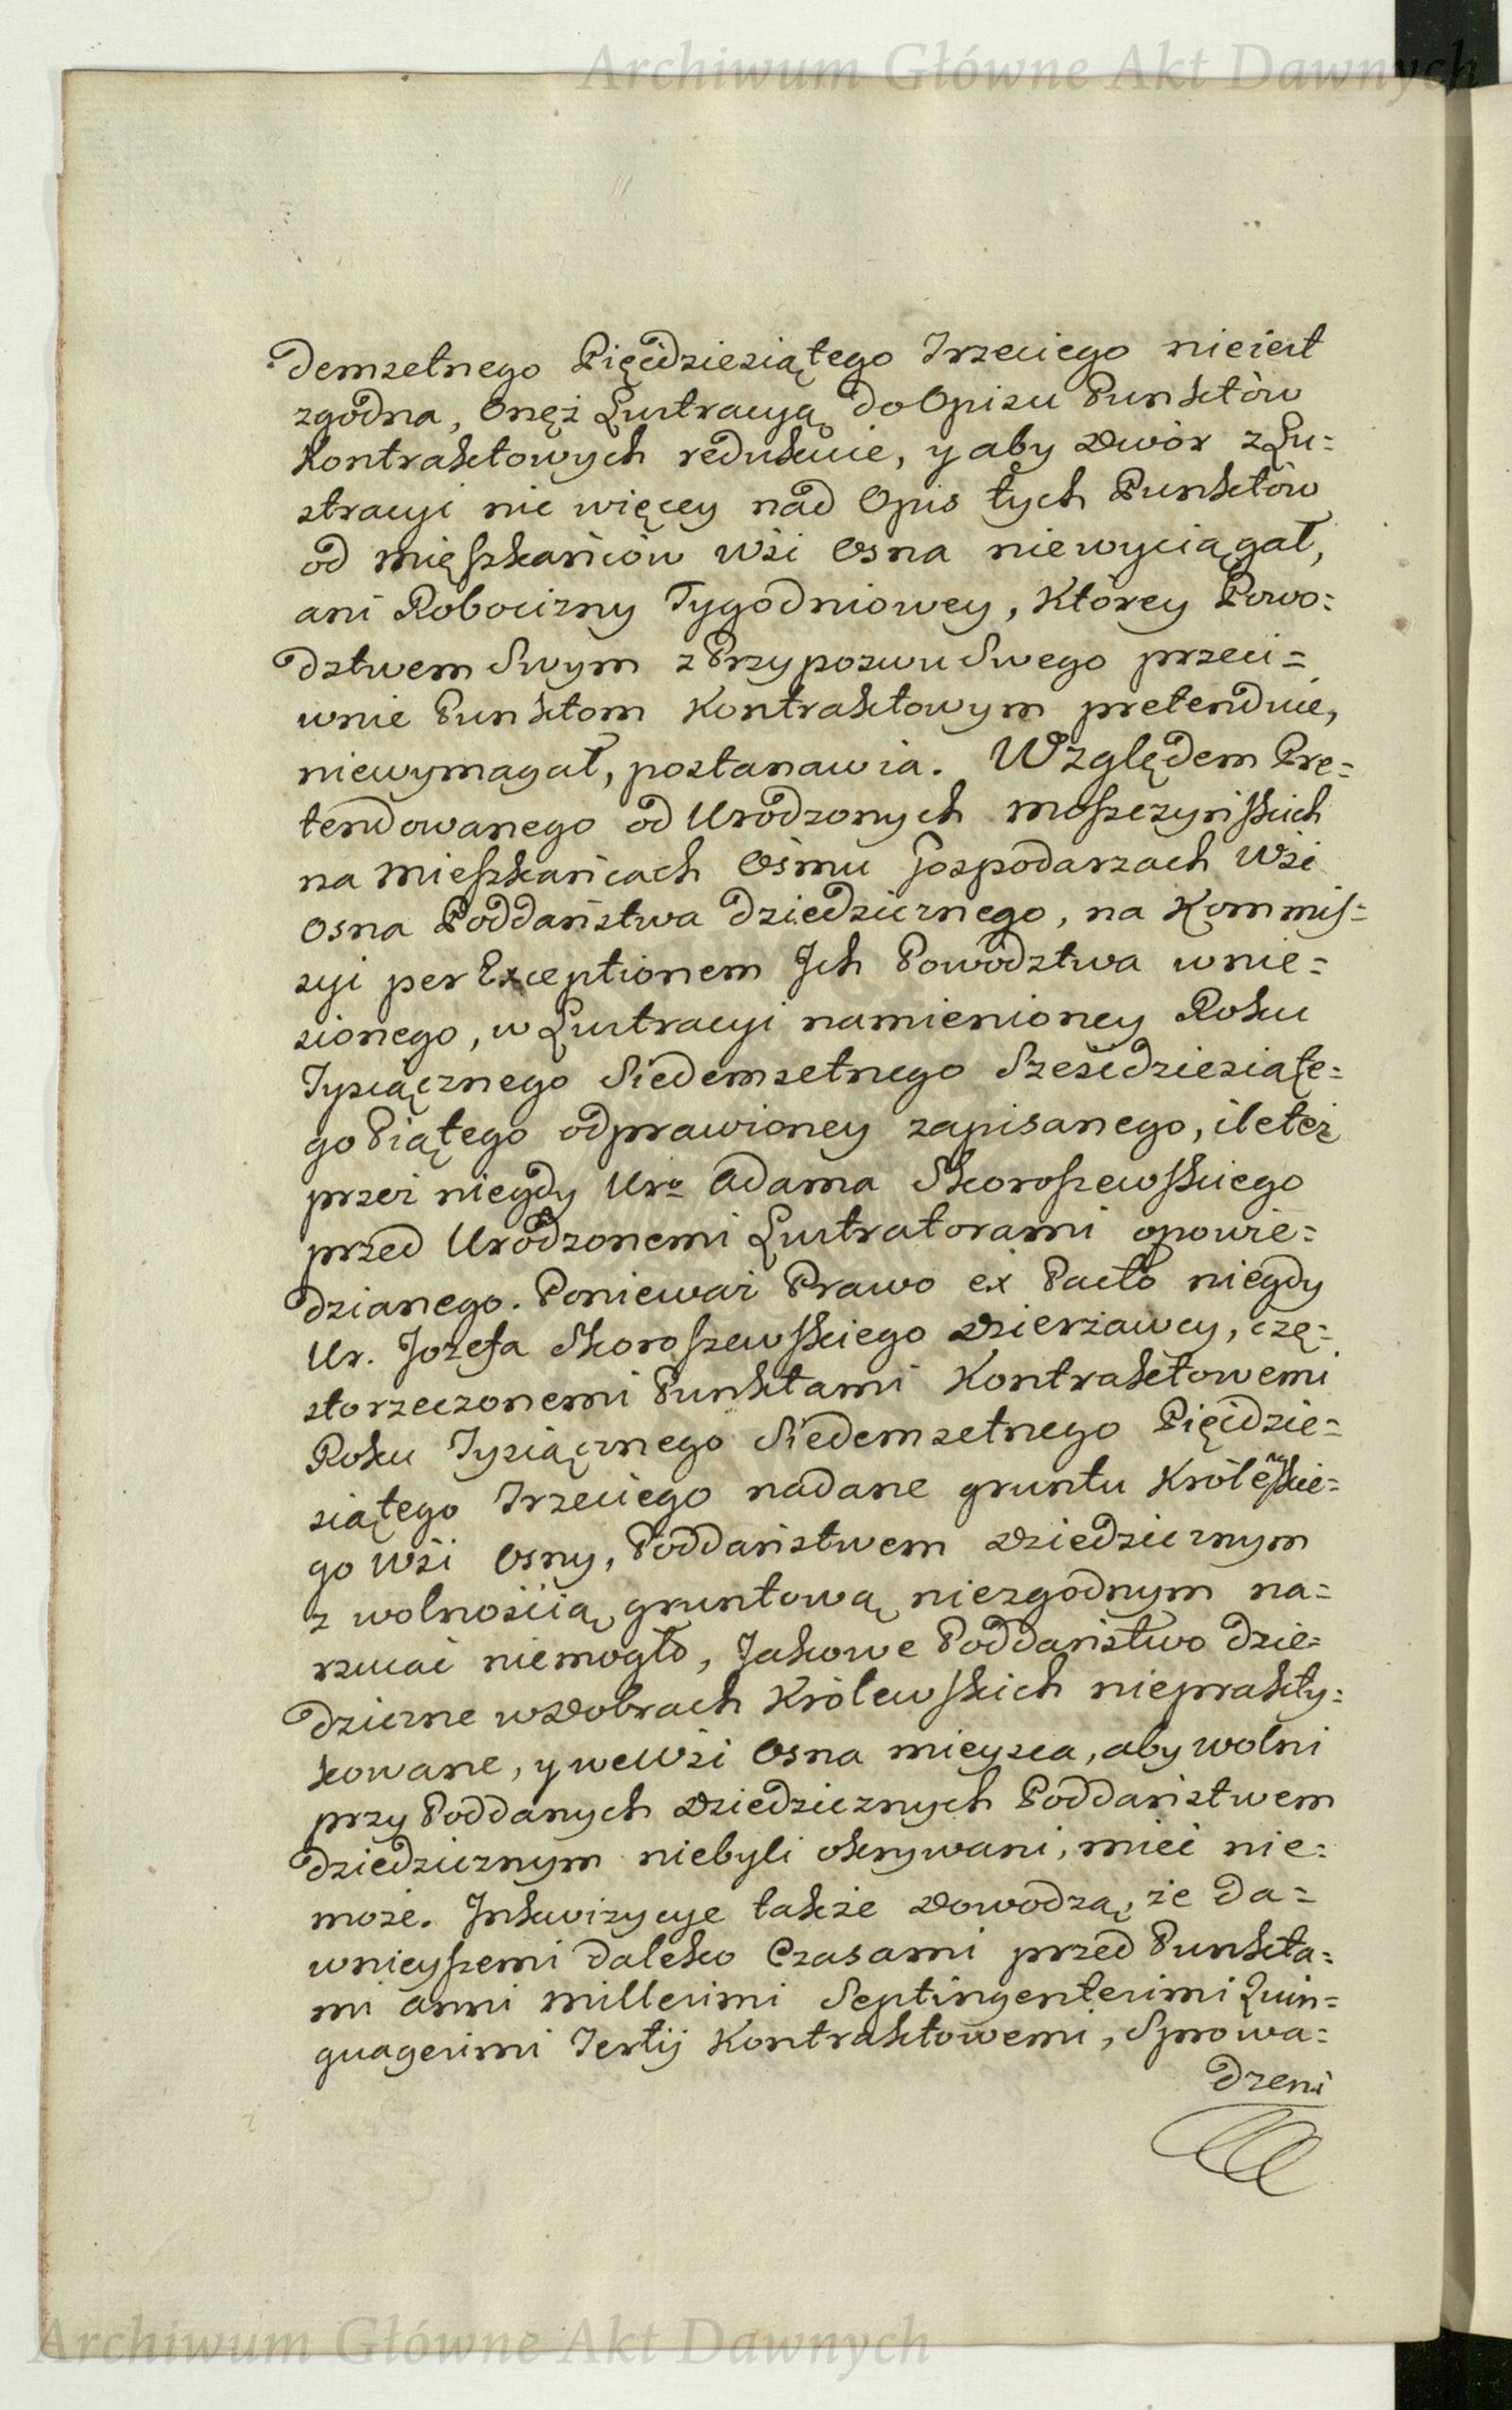 Archiwum Główne Akt Dawnych
demsetnego Pięćdziesiątego Trzeciego nieiest
zgodna, Onęż Lustracyą do Opisu Punktów
Kontraktowych redukuie, y aby Dwór z Lu=
stracyi nic więcey nad Opis tych Punktów
od mięszkańców Wsi Osna niewyciągał,
ani Robocizny Tygodniowey, Którey Powo=
dztwem Swym z Przypozwu Swego przeci=
wnie Punktom Kontraktowym pretenduie,
niewymagał, postanawia. Względem Pre=
tendowanego od Urodzonych Moszczyńskich
na Mieszkańcach Ośmu Gospodarzach Wsi
Osna Poddaństwa dziedzicznego, na Kommis=
syi per Exceptionem Ich Powództwa wnie=
sionego, w Lustracyi namienioney Roku
Tysiącznego Siedemsetnego Sześćdziesiąte=
go Piątego odprawioney zapisanego, ileteż
przez niegdy Uro Adama Skoroszewskiego
przed Urodzonemi Lustratorami opowie=
dzianego. Ponieważ Prawo ex Pacto niegdy
Ur. Jozefa Skoroszewskiego Dzierżawcy, czę=
storzeczonemi Punktami Kontraktowemi
Roku Tysiącznego Siedemsetnego Pięćdzie=
siątego Trzeciego nadane gruntu Królewskie=
go Wsi Osny, Poddaństwem Dziedzicznym
z wolnością gruntową niezgodnym na=
rzucać niemogło, Jakowe Poddaństwo dzie=
dziczne w Dobrach Królewskich nieprakty=
kowane, y we Wsi Osna mieysca, aby wolni
przy Poddanych Dziedzicznych Poddaństwem
dziedzicznym niebyli okrywani, mieć nie=
może. Inkwizycye także Dowodzą, że da=
wnieyszemi daleko Czasami przed Punkta=
mi Anni millesimi Septingentesimi Quin=
quagesimi Tertij Kontraktowemi, Sprowa=
dzeni
Archiwum Główne Akt Dawnych